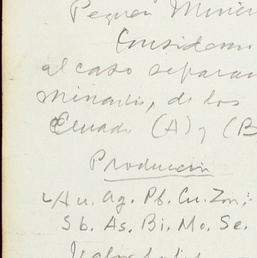 Pequeñ Miner
Consideram
el caso separan
minado, de los
(A) y (B
Produccion
Au. Ag. Pb. Cu. Zn;
Sb. As. Bi. Mo. Se.